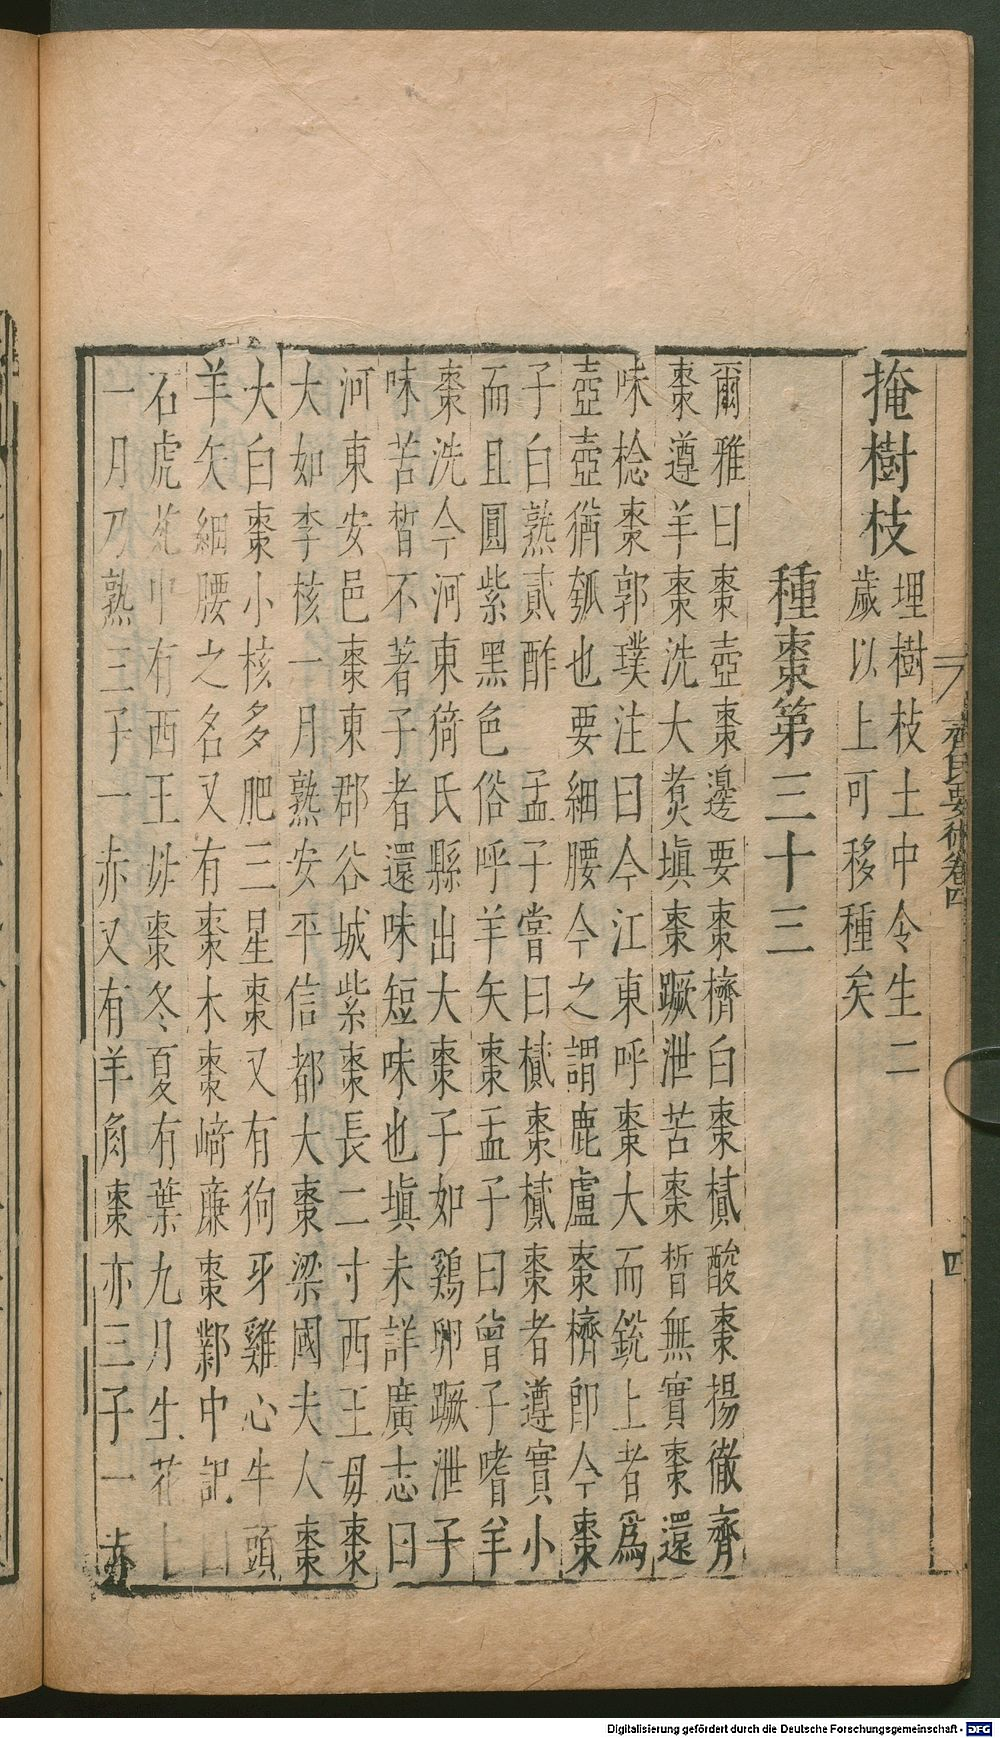 掩樹枝埋樹枝土中令生二
歲以上可移種矣
種棗第三十三
爾雅曰棗壺棗邊要棗櫅白棗樲酸棗揚徹齊
棗遵羊棗洗大煑塡棗蹶泄苦棗晳無實棗還
味棯棗郭璞注曰今江東呼棗大而銳上者爲
壺壺猶瓠也要細腰今之謂鹿盧棗櫅卽今棗
子白熟貳酢 孟子嘗曰樲棗樲棗者遵實小
而且圓紫黑色俗呼羊矢棗孟子曰曾子嗜羊
棗洗今河東猗氏縣出大棗子如鷄卵蹶泄子
味苦晳不著子者還味短味也塡未詳廣志曰
河東安邑棗東郡谷城紫棗長二寸西王毋棗
大如李核一月熟安平信都大棗梁國夫人棗
大白棗小核多肥三星棗又有狗牙雞心牛頭
羊矢細腰之名又有棗木棗崎廉棗鄴中記曰
石虎苑中有西王母棗冬夏有葉九月生花十
一月乃熟三子一赤又有羊角棗亦三子一赤
齊民要術卷四
四
Digitalisierung gefördert durch die Deutsche Forschungsgemeinschaft - DFG